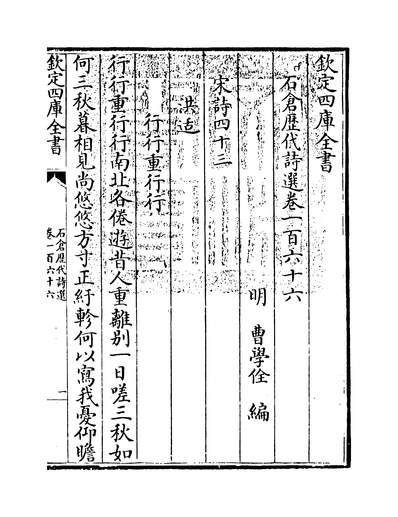 欽定四庫全書
石倉歴代詩選卷一百六十六
明 曹學佺 編
宋詩四十三
洪适
行行重行行
行行重行行南北各倦遊昔人重離别一日嗟三秋如
何三秋暮相見尚悠悠方寸正紆軫何以寫我憂仰瞻
欽定四庫全書
石倉歴代詩選
卷一百六十六
一